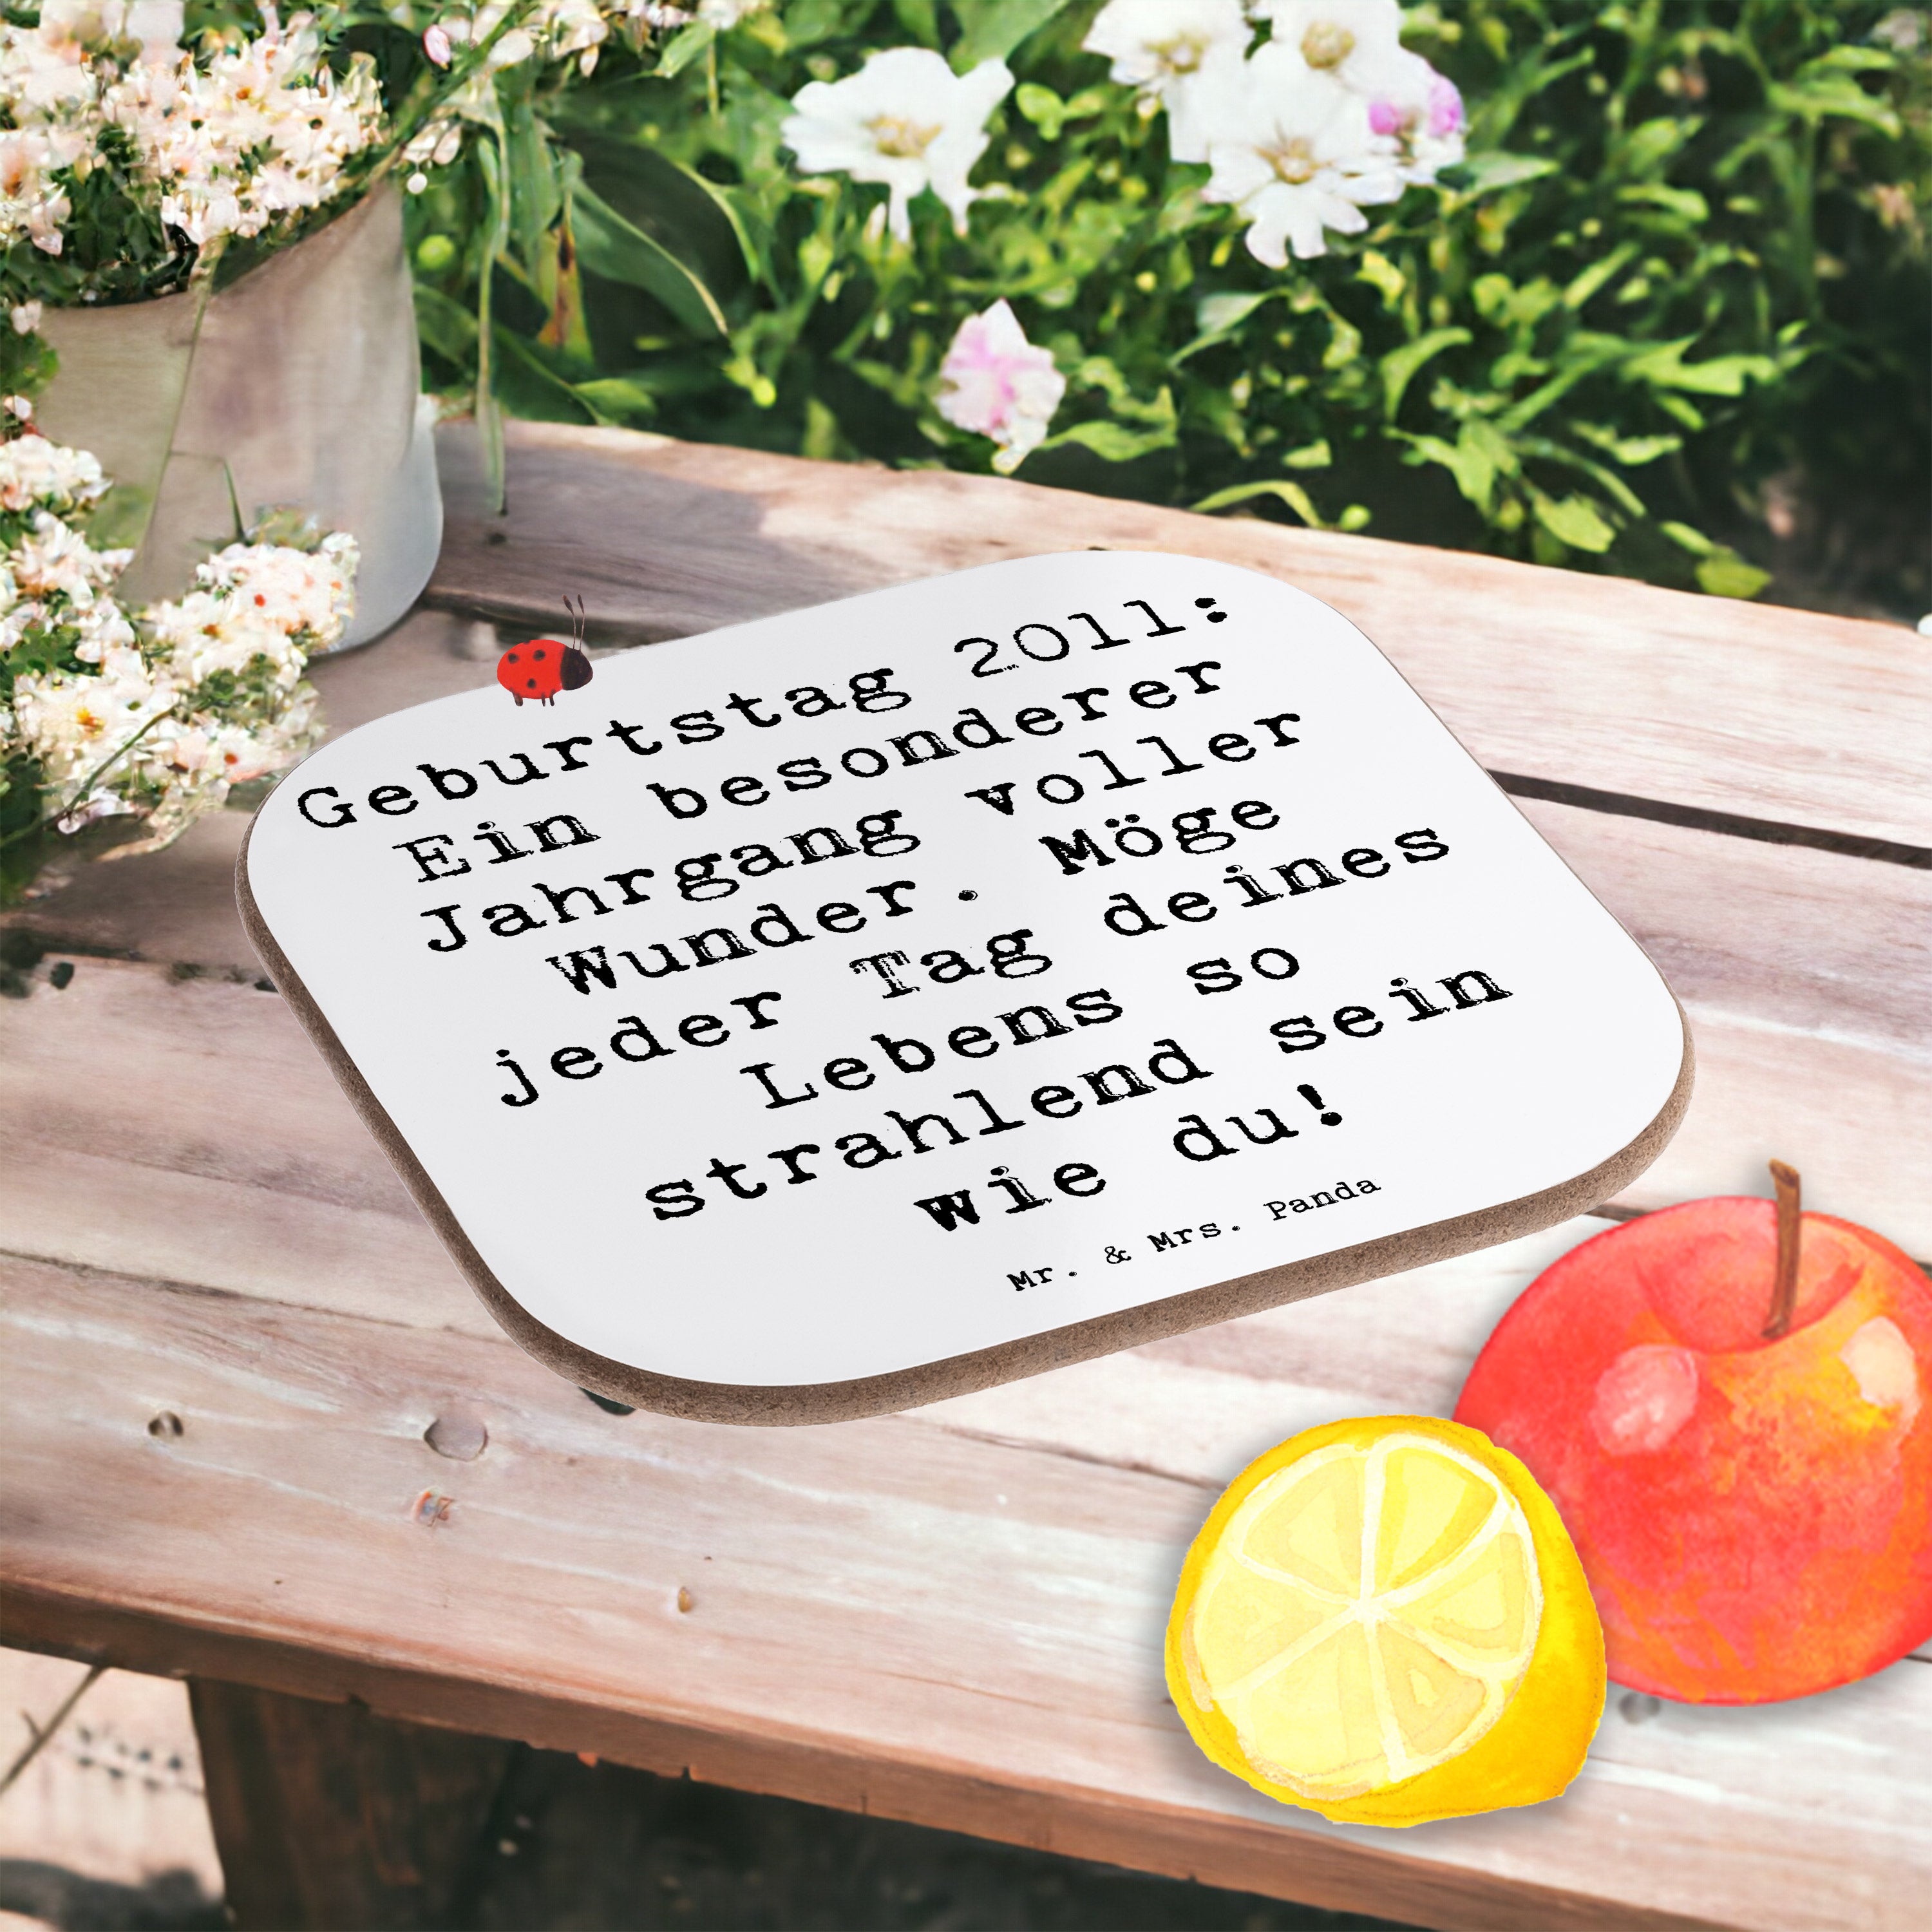 Geburtstag 2011:
Ein besonderer
Jahrgang voller
Wunder. Möge
jeder Tag deines
Lebens so
strahlend sein
wie du!
Mr. & Mrs. Panda